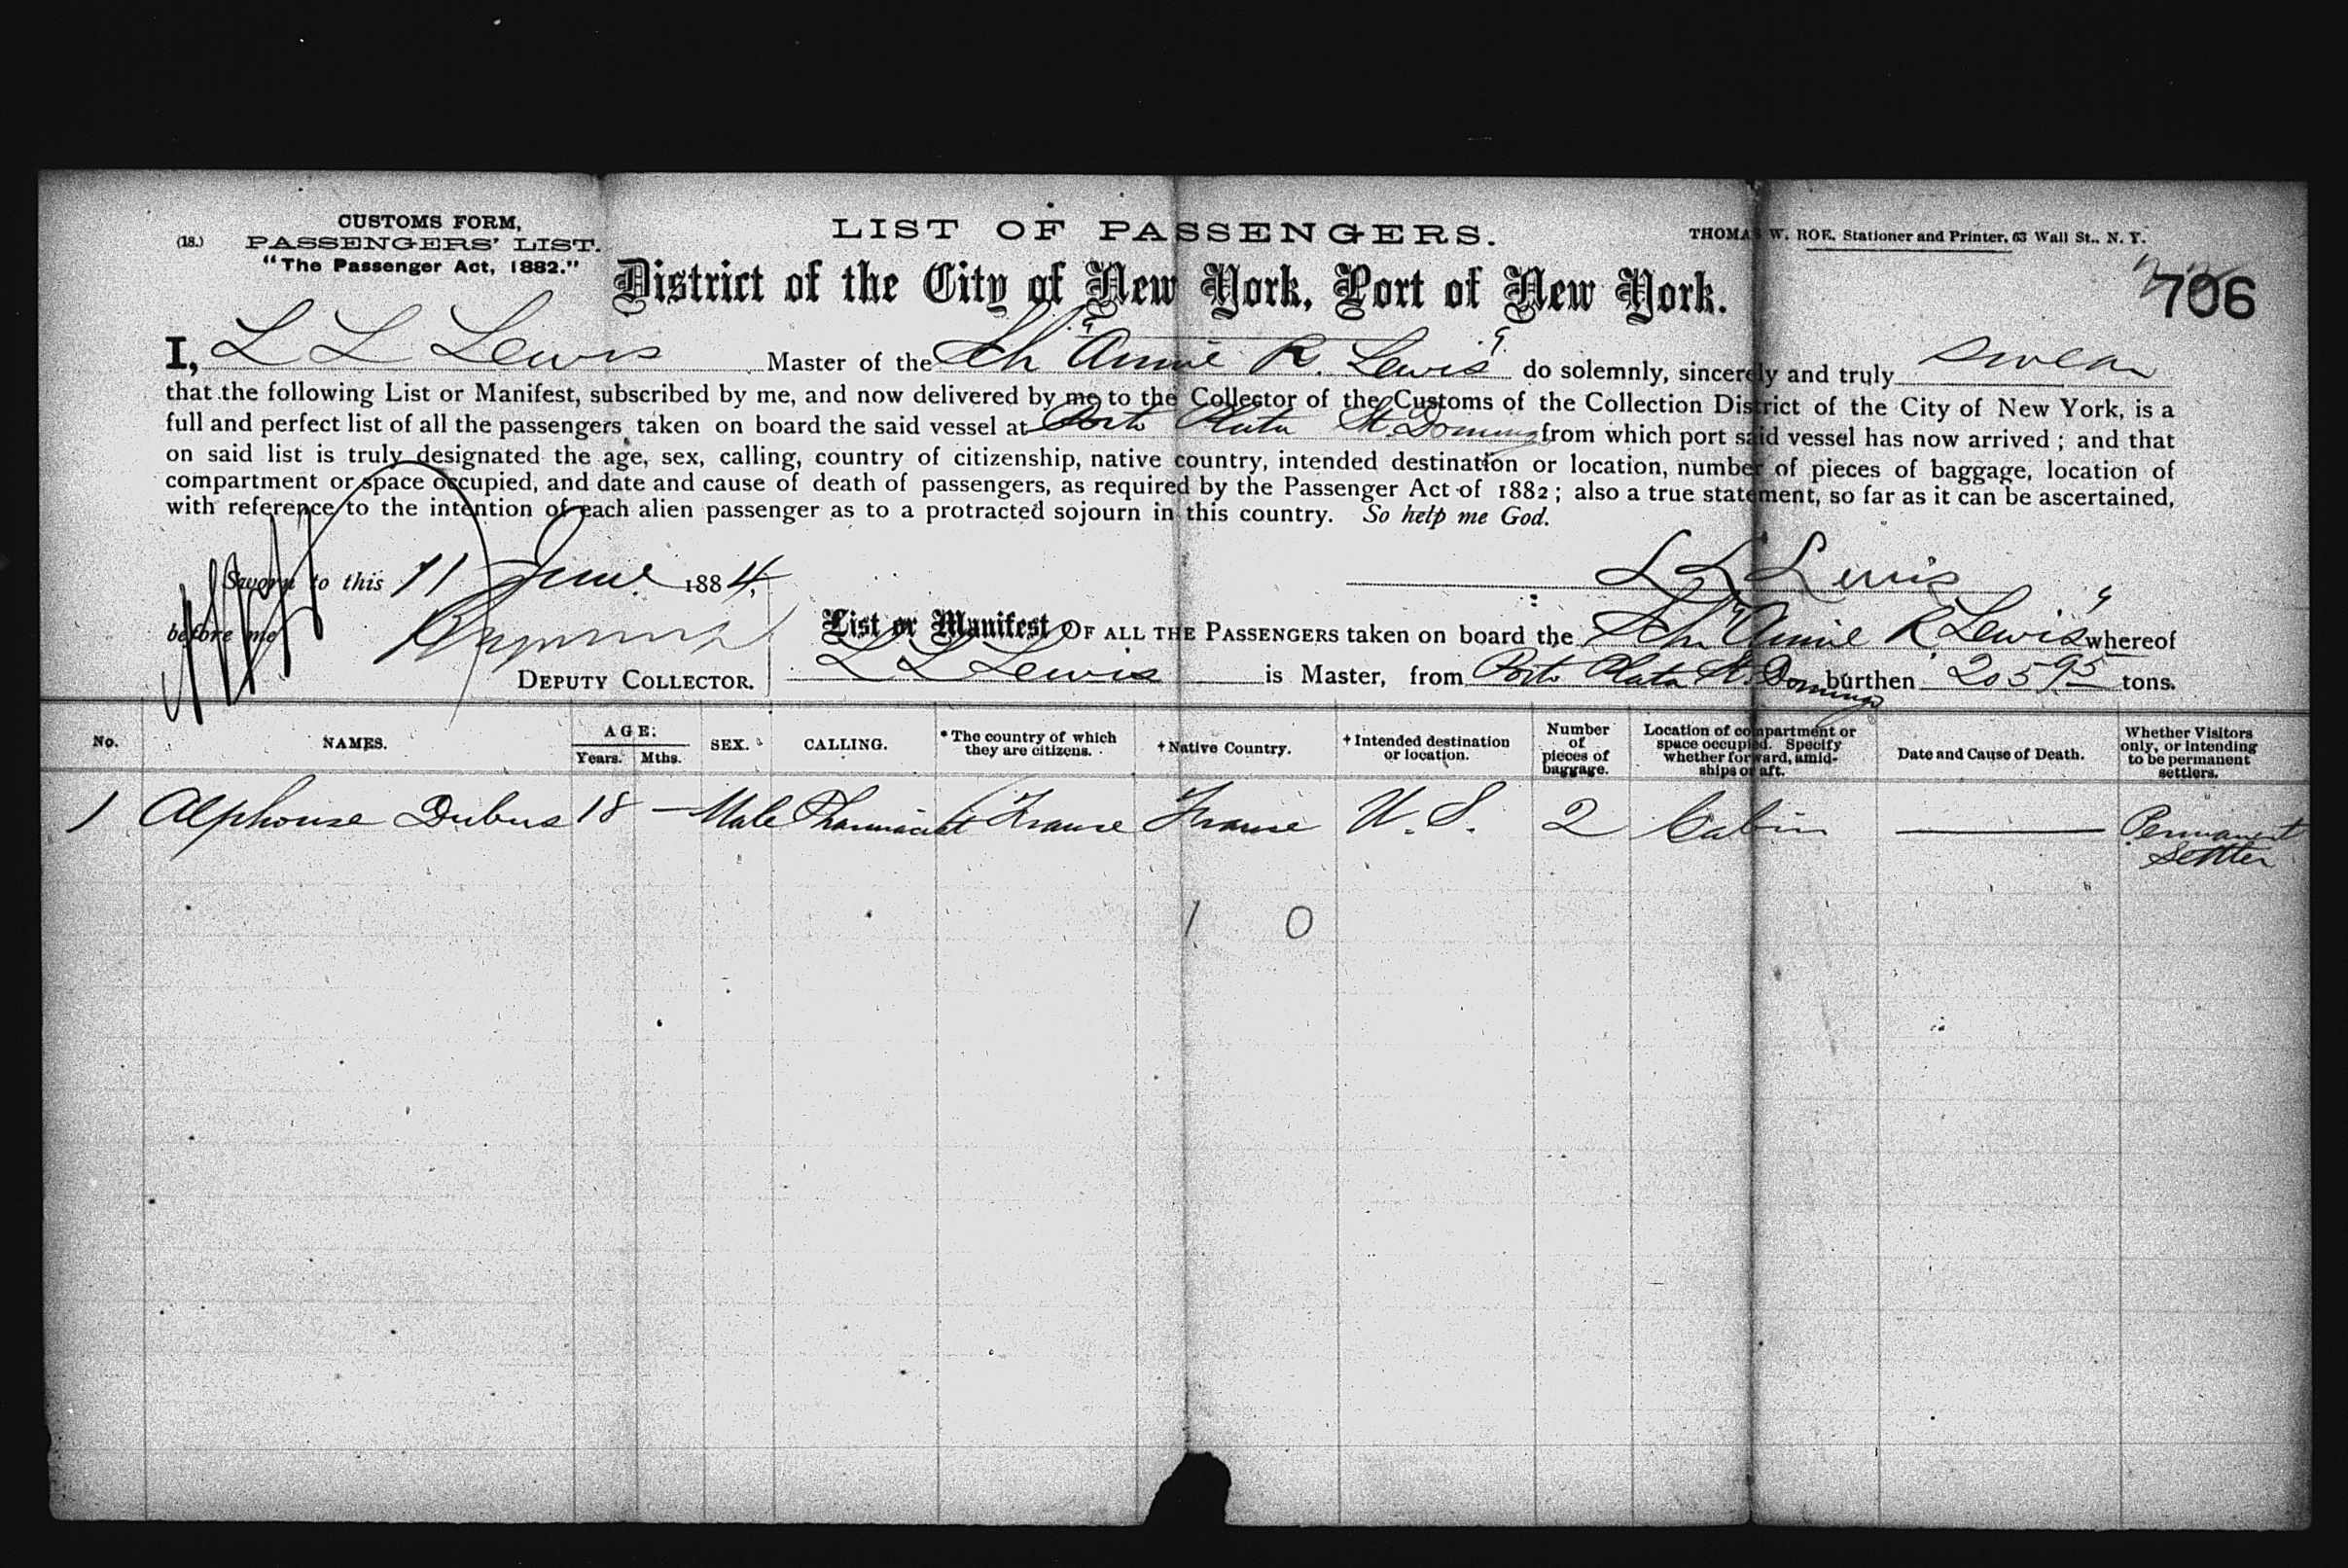 CUSTOMS FORM,
(18.) PASSENGERS' LIST.
"The Passenger Act, 1882."
LIST OF PASSENGERS.
THOMAS W. ROE, Stationer and Printer, 63 Wall St., N. Y.
District of the City of New York, Port of New York.
706
I, L L Lewis Master of the Sch "Annie R. Lewis" do solemnly, sincerely and truly swear
that the following List or Manifest, subscribed by me, and now delivered by me to the Collector of the Customs of the Collection District of the City of New York, is a
full and perfect list of all the passengers taken on board the said vessel at Porto Plata St. Domingo from which port said vessel has now arrived; and that
on said list is truly designated the age, sex, calling, country of citizenship, native country, intended destination or location, number of pieces of baggage, location of
compartment or space occupied, and date and cause of death of passengers, as required by the Passenger Act of 1882; also a true statement, so far as it can be ascertained,
with reference to the intention of each alien passenger as to a protracted sojourn in this country. So help me God.
Sworn to this 11 June 1884,
L L Lewis
before me
DEPUTY COLLECTOR.
List or Manifest OF ALL THE PASSENGERS taken on board the Schr "Annie R. Lewis" whereof
L L Lewis is Master, from Porto Plata St. Domingo burthen 205 95 tons.
No. NAMES. AGE: Years. Mths. SEX. CALLING. *The country of which they are citizens. †Native Country. †Intended destination or location. Number of pieces of baggage. Location of compartment or space occupied. Specify whether forward, amidships or aft. Date and Cause of Death. Whether Visitors only, or intending to be permanent settlers.
1 Alphonse Dubus 18 — Male Pharmacist France France U. S. 2 Cabin — Permanent Settler
1 0